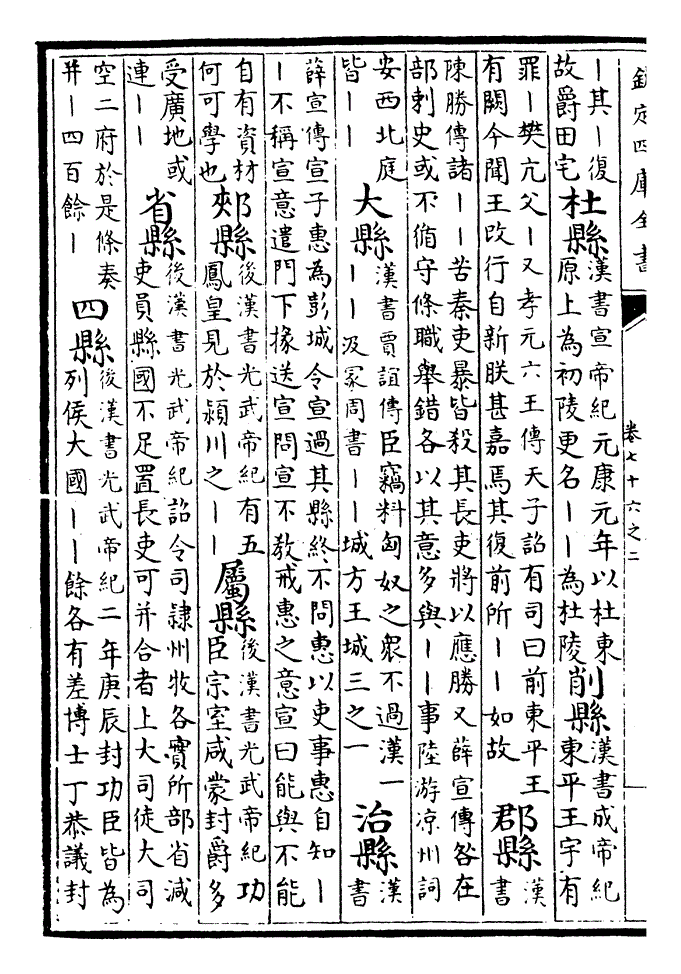 欽定四庫全書
卷七十六之二
丨其丨復
故爵田宅
杜縣
漢書宣帝紀元康元年以杜東
原上為初陵更名丨丨為杜陵
削縣
漢書成帝紀
東平王宇有
罪丨樊亢父丨又孝元六王傳天子詔有司曰前東平王
有闕今聞王改行自新朕甚嘉焉其復前所丨丨如故
郡縣
漢
書
陳勝傳諸丨丨苦秦吏暴皆殺其長吏將以應勝又薛宣傳咎在
部刺史或不循守條職舉錯各以其意多與丨丨事陸游凉州詞
安西北庭
皆丨丨
大縣
漢書賈誼傳臣竊料匈奴之衆不過漢一
丨丨汲冢周書丨丨城方王城三之一
治縣
漢
書
薛宣傳宣子惠為彭城令宣過其縣終不問惠以吏事惠自知丨
丨不稱宣意遣門下掾送宣問宣不教戒惠之意宣曰能與不能
自有資材
何可學也
郟縣
後漢書光武帝紀有五
鳳皇見於潁川之丨丨
屬縣
後漢書光武帝紀功
臣宗室咸蒙封爵多
受廣地或
連丨丨
省縣
後漢書光武帝紀詔令司隸州牧各實所部省減
吏員縣國不足置長吏可并合者上大司徒大司
空二府於是條奏
并丨四百餘丨
四縣
後漢書光武帝紀二年庚辰封功臣皆為
列侯大國丨丨餘各有差博士丁恭議封